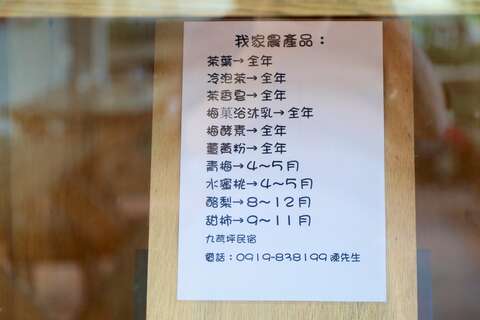 我家農產品：
茶葉→全年
冷泡茶→全年
茶香皂→全年
梅菓浴沐乳→全年
梅酵素→全年
薑黃粉→全年
青梅→4～5月
水蜜桃→4～5月
酪梨→8～12月
甜柿→9～11月
九芎坪民宿
電話：0919-838199 陳先生